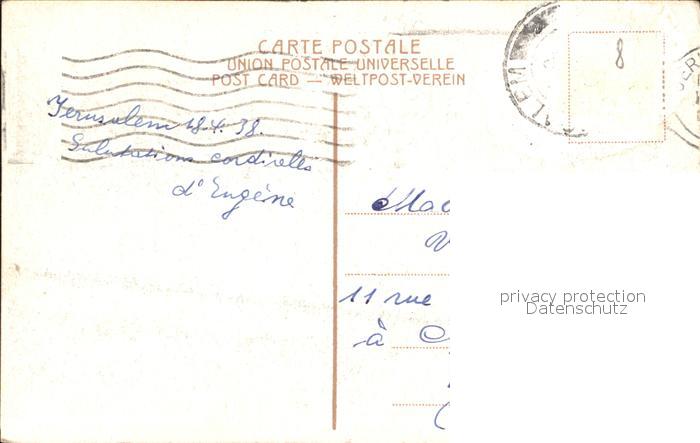 CARTE POSTALE
UNION POSTALE UNIVERSELLE
POST CARD — WELTPOST-VEREIN
8
ALEM
JER
Jerusalem 18.4.38.
Salutations cordiales
d'Eugène
11 rue
à
privacy protection
Datenschutz